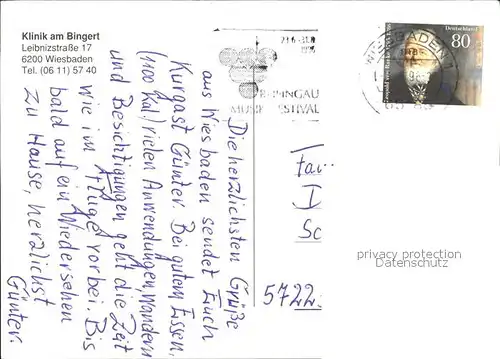 Klinik am Bingert
Leibnizstraße 17
6200 Wiesbaden
Tel. (06 11) 57 40
RHEINGAU
MUSIKFESTIVAL
WIESBADEN
Deutschland
80
Die herzlichsten Grüße
aus Wiesbaden sendet Euch
Kurgast Günter. Bei gutem Essen,
(1100 Kal.) vielen Anwendungen, Wandern
und Besichtigungen geht die Zeit
wie im Fluge vorbei. Bis
bald auf ein Wiedersehen
zu Hause, herzlichst
Günter.
Fam
I
Sc
5722
privacy protection
Datenschutz